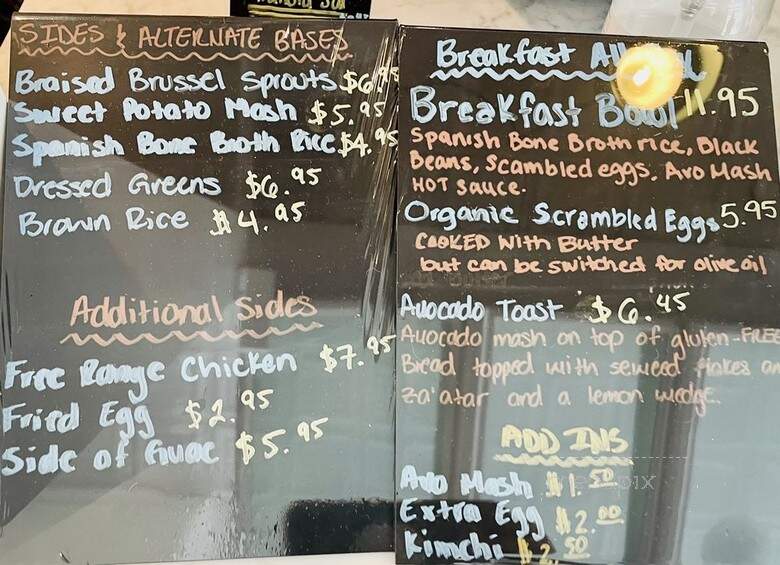 SIDES & ALTERNATE BASES
Braised Brussel Sprouts $6.95
Sweet Potato Mash $5.95
Spanish Bone Broth Rice $4.95
Dressed Greens $6.95
Brown Rice $4.95
Additional Sides
Free Range Chicken $7.95
Fried Egg $2.95
Side of Guac $5.95
Breakfast All
Breakfast Bowl 11.95
Spanish Bone Broth rice, Black
Beans, Scambled eggs, Avo Mash
HOT sauce.
Organic Scrambled Eggs 5.95
COOKED With Butter
but can be switched for olive oil
Avocado Toast $6.45
Avocado mash on top of gluten-FREE
Bread topped with seweed flakes an
za'atar and a lemon wedge.
ADD INS
Avo Mash $1.50
Extra Egg $2.00
Kimchi $2.50